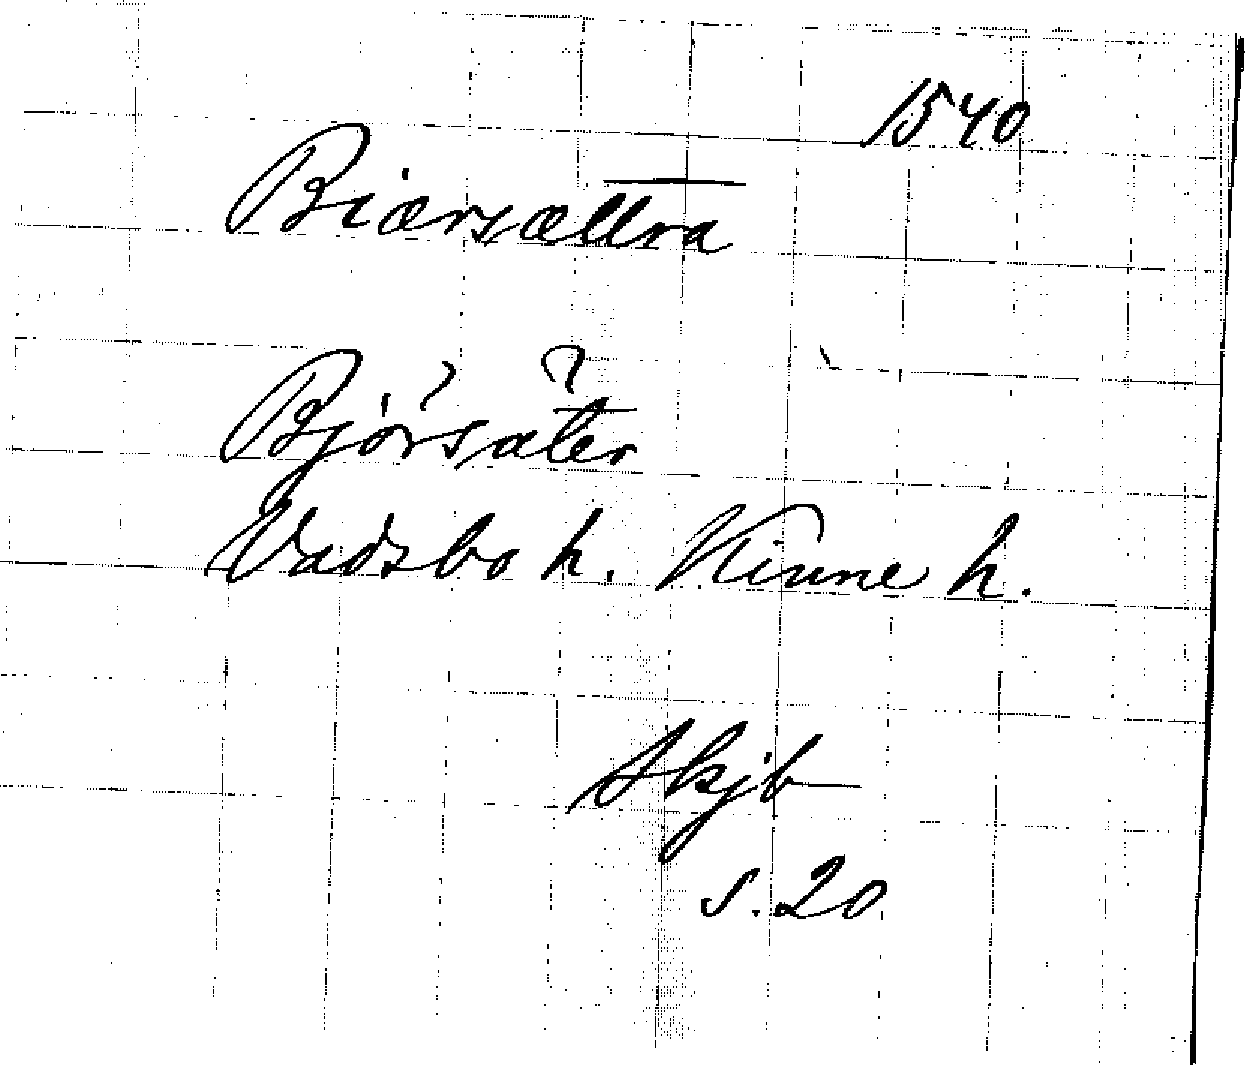 1540
Biærsættra
Björsäter
Vadsbo h. Kinne h.
Skjb
s. 20